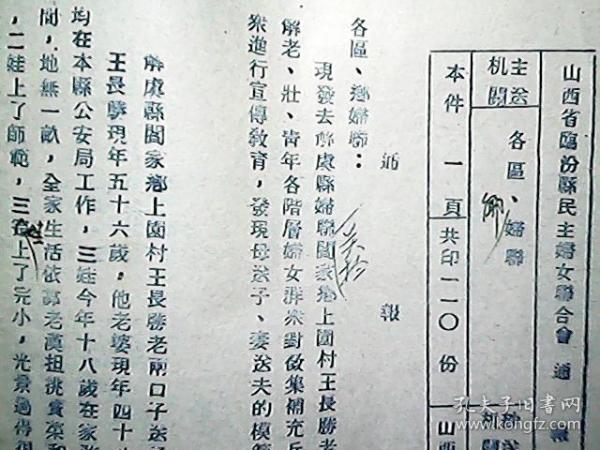 山西省臨汾縣民主婦女聯合會 通 報
主送机關 各區、鄉 婦聯
本件一頁 共印一一〇份
通 報
各區、鄉婦聯：
現發去解虞縣婦聯閻家鄉上園村王長勝老
解老、壯、青年各階層婦女群衆對徵集補充兵
衆進行宣傳教育，發現母送子、妻送夫的模範
解虞縣閻家鄉上園村王長勝老兩口子送
王長勝現年五十六歲，他老婆現年四十
均在本縣公安局工作，三娃今年十八歲在家
間，地無一畝，全家生活依靠老漢担挑賣菜和
，二娃上了師範，三娃上了完小，光景過得很
孔夫子旧书网
www.kongfz.com